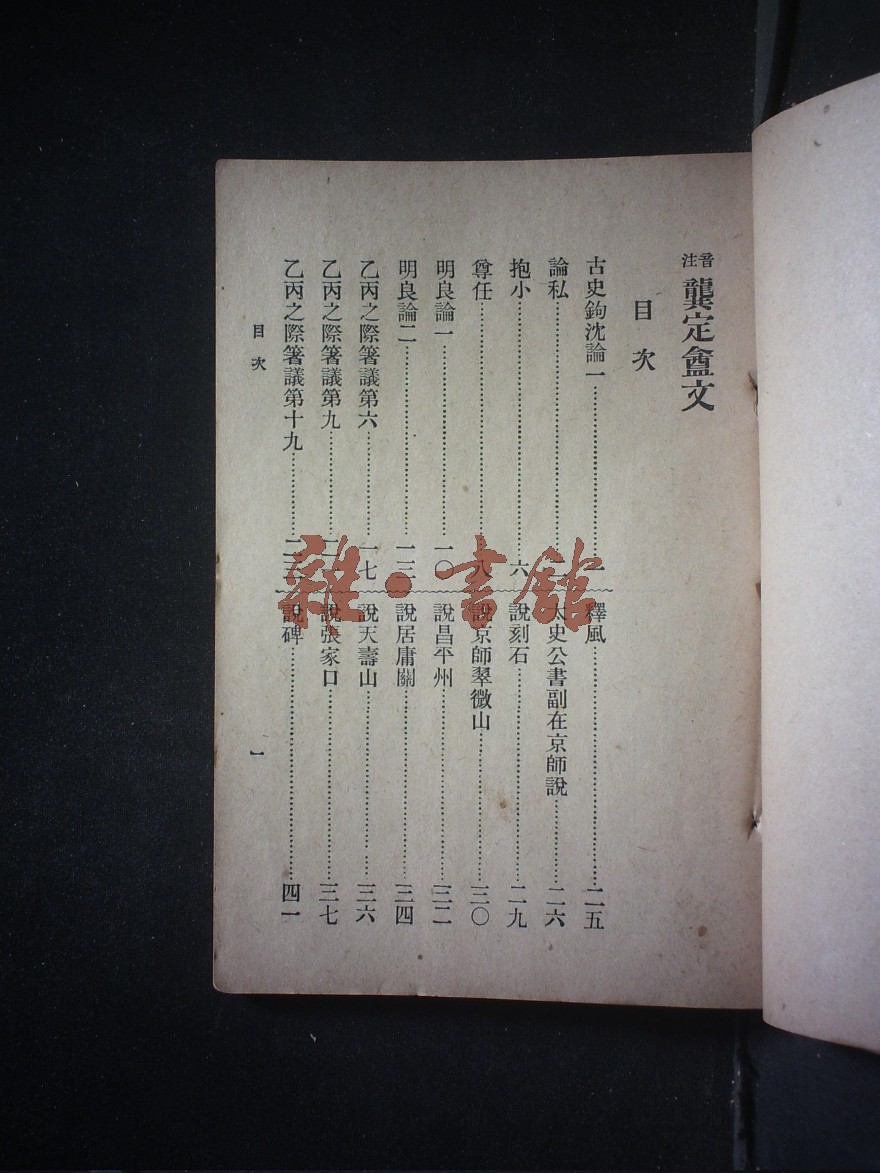 音注 龔定盦文
目次
古史鉤沈論一……一
論私……
抱小……六
尊任……八
明良論一……一〇
明良論二……一三
乙丙之際箸議第六……一七
乙丙之際箸議第九……二
乙丙之際箸議第十九……二三
釋風……二五
太史公書副在京師說……二六
說刻石……二九
說京師翠微山……三〇
說昌平州……三二
說居庸關……三四
說天壽山……三六
說張家口……三七
說碑……四一
目次
一
雜·書館